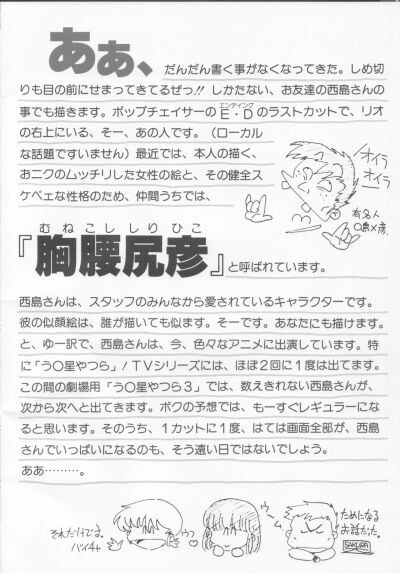 ああ、だんだん書く事がなくなってきた。しめ切
りも目の前にせまってきてるぜっ!! しかたない、お友達の西島さんの
事でも描きます。ポップチェイサーのE・Dのラストカットで、リオ
エンディング
の右上にいる、そー、あの人です。(ローカル
な話題ですいません)最近では、本人の描く、
おニクのムッチリした女性の絵と、その健全ス
ケベェな性格のため、仲間うちでは、
オイラ
オイラ
有名人
〇島×彦
むねこししりひこ
『胸腰尻彦』と呼ばれています。
西島さんは、スタッフのみんなから愛されているキャラクターです。
彼の似顔絵は、誰が描いても似ます。そーです。あなたにも描けます。
と、ゆー訳で、西島さんは、今、色々なアニメに出演しています。特
に「う〇星やつら」!TVシリーズには、ほぼ2回に1度は出てます。
この間の劇場用「う〇星やつら3」では、数えきれない西島さんが、
次から次へと出てきます。ボクの予想では、もーすぐレギュラーにな
ると思います。そのうち、1カットに1度、はては画面全部が、西島
さんでいっぱいになるのも、そう遠い日ではないでしょう。
ああ………。
それだけです。
バイチャ
ウフ
ウーム
ためになる
お話だった。
SAKURA